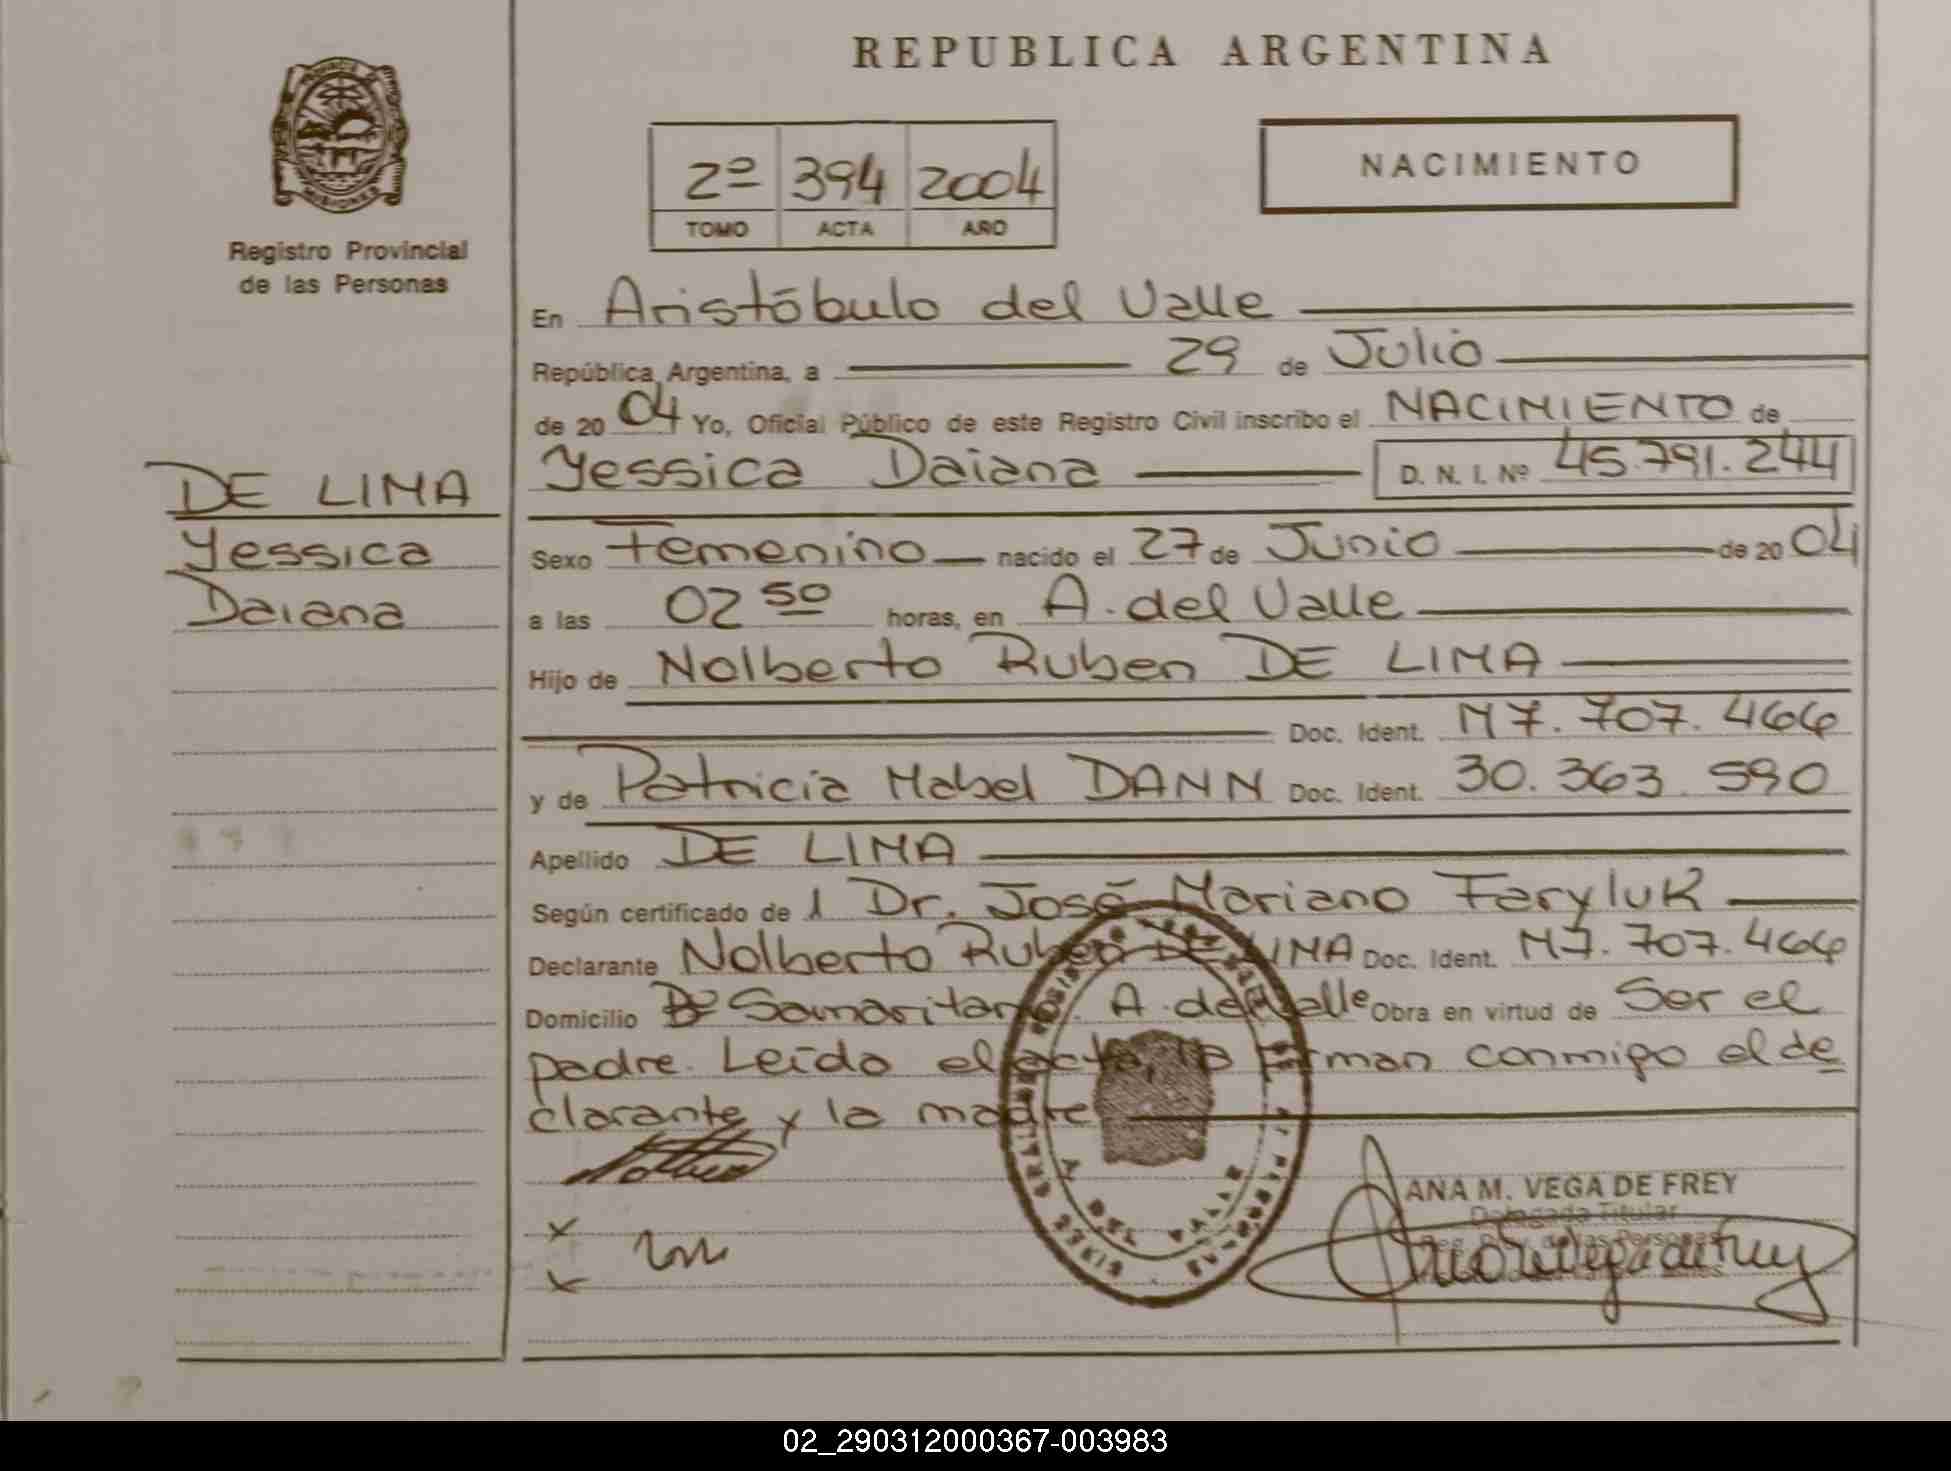 REPUBLICA ARGENTINA
2º 394 2004
TOMO ACTA AÑO
NACIMIENTO
Registro Provincial
de las Personas
DE LIMA
Yessica
Daiana
En Aristóbulo del Valle
República Argentina, a 29 de Julio
de 20 04 Yo, Oficial Público de este Registro Civil inscribo el NACIMIENTO de
Yessica Daiana D. N. I. Nº 45.791.244
Sexo Femenino nacido el 27 de Junio de 20 04
a las 02 50 horas, en A. del Valle
Hijo de Nolberto Ruben DE LIMA
Doc. Ident. M7.707.466
y de Patricia Mabel DANN Doc. Ident. 30.363.590
Apellido DE LIMA
Según certificado de l Dr. José Mariano Faryluk
Declarante Nolberto Ruben DE LIMA Doc. Ident. M7.707.466
Domicilio Bº Samaritano A. del Valle Obra en virtud de Ser el
padre. Leída el acta, la firman conmigo el de
clarante y la madre
ANA M. VEGA DE FREY
Delegada Titular
Reg. Prov. de las Personas
A DEL VALLE
02_290312000367-003983